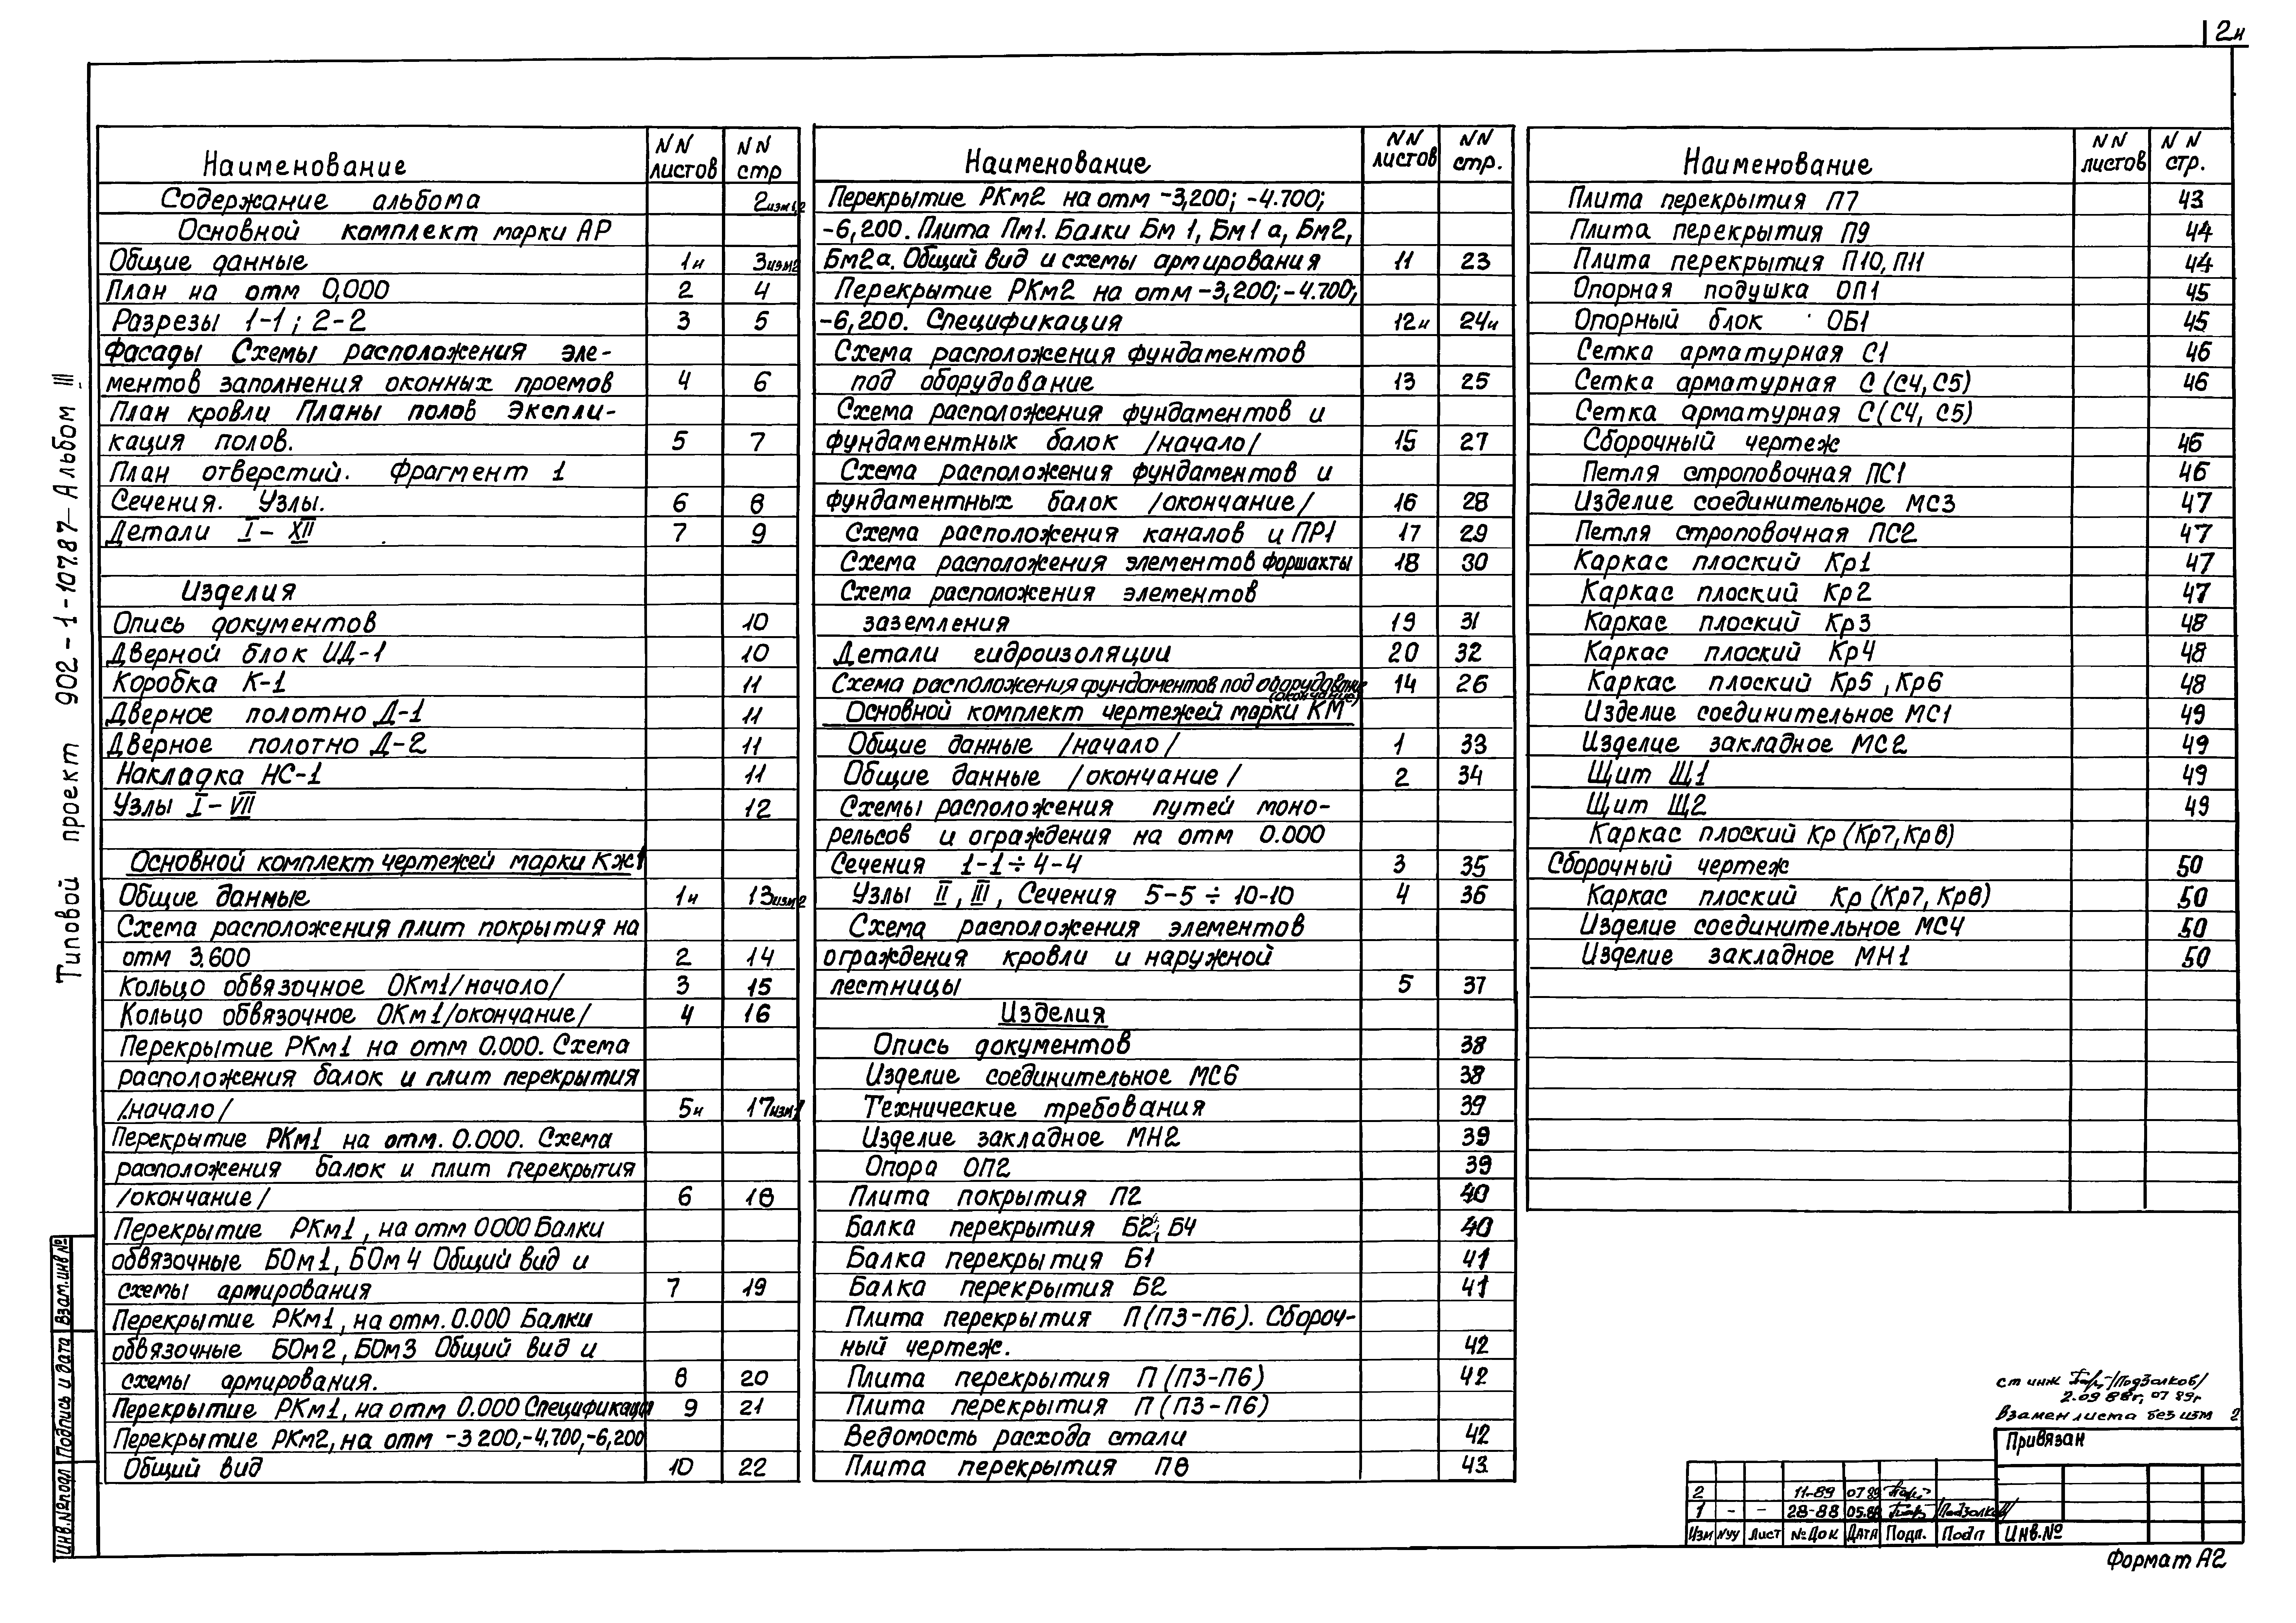 2и
Типовой проект 902-1-107.87- Альбом III
Наименование NN листов NN стр
Содержание альбома 2изм1,2
Основной комплект марки АР
Общие данные 1и 3изм2
План на отм 0,000 2 4
Разрезы 1-1; 2-2 3 5
Фасады Схемы расположения эле-
ментов заполнения оконных проемов 4 6
План кровли Планы полов Экспли-
кация полов. 5 7
План отверстий. Фрагмент 1
Сечения. Узлы. 6 8
Детали I - XII 7 9
Изделия
Опись документов 10
Дверной блок ИД-1 10
Коробка К-1 11
Дверное полотно Д-1 11
Дверное полотно Д-2 11
Накладка НС-1 11
Узлы I - VII 12
Основной комплект чертежей марки КЖ1
Общие данные 1и 13изм2
Схема расположения плит покрытия на
отм 3.600 2 14
Кольцо обвязочное ОКм1/начало/ 3 15
Кольцо обвязочное ОКм1/окончание/ 4 16
Перекрытие РКм1 на отм 0.000. Схема
расположения балок и плит перекрытия
/начало/ 5и 17изм1
Перекрытие РКм1 на отм. 0.000. Схема
расположения балок и плит перекрытия
/окончание/ 6 18
Перекрытие РКм1, на отм 0000 Балки
обвязочные БОм1, БОм4 Общий вид и
схемы армирования 7 19
Перекрытие РКм1, на отм. 0.000 Балки
обвязочные БОм2, БОм3 Общий вид и
схемы армирования. 8 20
Перекрытие РКм1, на отм 0.000 Спецификация 9 21
Перекрытие РКм2, на отм -3 200,-4.700,-6,200
Общий вид 10 22
Наименование NN листов NN стр.
Перекрытие РКм2 на отм -3,200; -4.700;
-6,200. Плита Пм1. Балки Бм 1, Бм1 а, Бм2,
Бм2а. Общий вид и схемы армирования 11 23
Перекрытие РКм2 на отм -3,200; -4.700;
-6,200. Спецификация 12и 24и
Схема расположения фундаментов
под оборудование 13 25
Схема расположения фундаментов и
фундаментных балок /начало/ 15 27
Схема расположения фундаментов и
фундаментных балок /окончание/ 16 28
Схема расположения каналов и ПР1 17 29
Схема расположения элементов форшахты 18 30
Схема расположения элементов
заземления 19 31
Детали гидроизоляции 20 32
Схема расположения фундаментов под оборудование (окончание) 14 26
Основной комплект чертежей марки КМ
Общие данные /начало/ 1 33
Общие данные /окончание/ 2 34
Схемы расположения путей моно-
рельсов и ограждения на отм 0.000
Сечения 1-1 ÷ 4-4 3 35
Узлы II, III, Сечения 5-5 ÷ 10-10 4 36
Схема расположения элементов
ограждения кровли и наружной
лестницы 5 37
Изделия
Опись документов 38
Изделие соединительное МС6 38
Технические требования 39
Изделие закладное МН2 39
Опора ОП2 39
Плита покрытия П2 40
Балка перекрытия Б2, Б4 40
Балка перекрытия Б1 41
Балка перекрытия Б2 41
Плита перекрытия П(П3-П6). Сбороч-
ный чертеж. 42
Плита перекрытия П (П3-П6) 42
Плита перекрытия П (П3-П6)
Ведомость расхода стали 42
Плита перекрытия П8 43
Наименование NN листов NN стр.
Плита перекрытия П7 43
Плита перекрытия П9 44
Плита перекрытия П10, П11 44
Опорная подушка ОП1 45
Опорный блок ОБ1 45
Сетка арматурная С1 46
Сетка арматурная С (С4, С5) 46
Сетка арматурная С(С4, С5)
Сборочный чертеж 46
Петля строповочная ПС1 46
Изделие соединительное МС3 47
Петля строповочная ПС2 47
Каркас плоский Кр1 47
Каркас плоский Кр2 47
Каркас плоский Кр3 48
Каркас плоский Кр4 48
Каркас плоский Кр5, Кр6 48
Изделие соединительное МС1 49
Изделие закладное МС2 49
Щит Щ1 49
Щит Щ2 49
Каркас плоский Кр (Кр7, Кр8)
Сборочный чертеж 50
Каркас плоский Кр (Кр7, Кр8) 50
Изделие соединительное МС4 50
Изделие закладное МН1 50
ст инж /Подзолков/
2.09 88г, 07 89г
Взамен листа без изм 2
Привязан
2 11-89 07 89
1 - - 28-88 05.88 /Подзолков/
Изм Nуч Лист №Док Дата Подп. Подп Инв.№
Формат А2
Инв.№подл Подпись и дата Взам.инв№